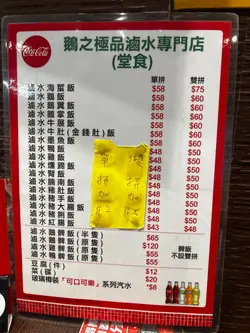 Coca-Cola
鵝之極品滷水專門店
(堂食)
單拼 雙拼
滷水海蜇飯 $58 $75
滷水鵝飯 $58 $60
滷水鵝翼飯 $58 $60
滷水鵝掌飯 $58 $60
滷水牛展飯 $58 $60
滷水牛肚(金錢肚)飯 $58 $60
滷水墨魚飯 $58 $60
滷水鴨飯 $48 $50
滷水雞飯 $48 $50
滷水 飯 $48 $50
滷水腎飯 $48 $50
滷水 飯 $48 $50
滷水豬肚飯 $48 $50
滷水豬手飯 $48 $50
滷水豬大腸飯 $48 $50
滷水豬脷飯 $48 $50
滷水紅腸飯 $48 $50
滷水鵝髀飯(半隻) $65
滷水鵝髀飯(原隻) $120 髀飯
滷水雞髀飯(原隻) $55 不設雙拼
滷水鴨髀飯(原隻) $55
豆腐(件) $12
菜(碟) $20
玻璃樽裝「可口可樂」系列汽水 *$8